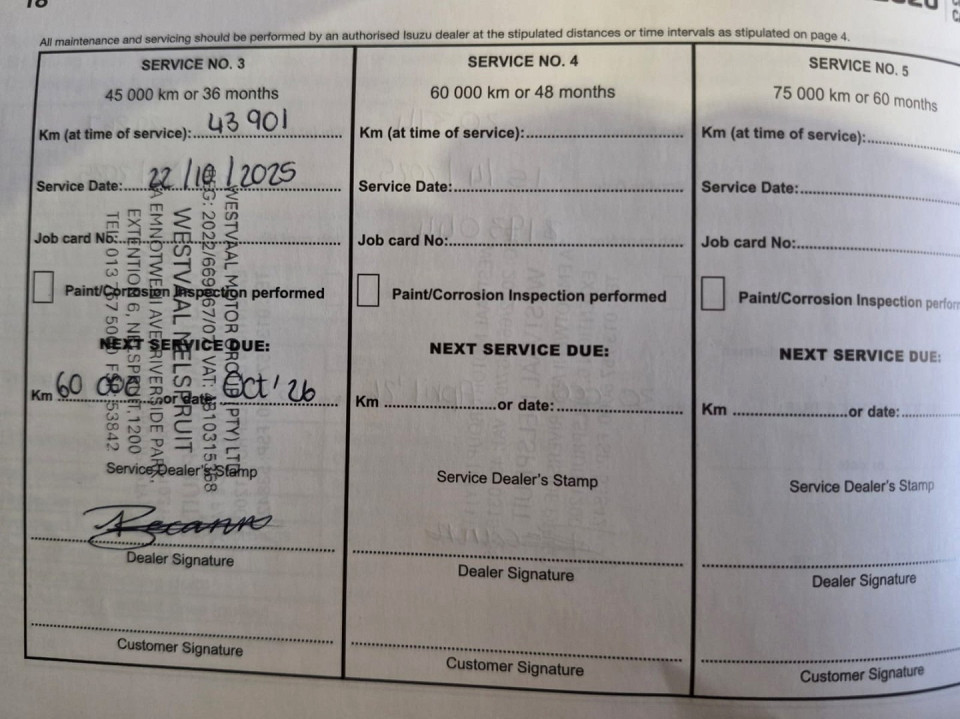 18
All maintenance and servicing should be performed by an authorised Isuzu dealer at the stipulated distances or time intervals as stipulated on page 4.
SERVICE NO. 3
45 000 km or 36 months
Km (at time of service): 43 901
Service Date: 22/10/2025
Job card No:
Paint/Corrosion Inspection performed
NEXT SERVICE DUE:
Km 60 000 or date: Oct' 26
Service Dealer's Stamp
Dealer Signature
Customer Signature
WESTVAL MOTOR GROUP (PTY) LTD
WESTVAL NELSPRUIT
RIVERSIDE PARK,
1200
SERVICE NO. 4
60 000 km or 48 months
Km (at time of service):
Service Date:
Job card No:
Paint/Corrosion Inspection performed
NEXT SERVICE DUE:
Km or date:
Service Dealer's Stamp
Dealer Signature
Customer Signature
SERVICE NO. 5
75 000 km or 60 months
Km (at time of service):
Service Date:
Job card No:
Paint/Corrosion Inspection perform
NEXT SERVICE DUE:
Km or date:
Service Dealer's Stamp
Dealer Signature
Customer Signature